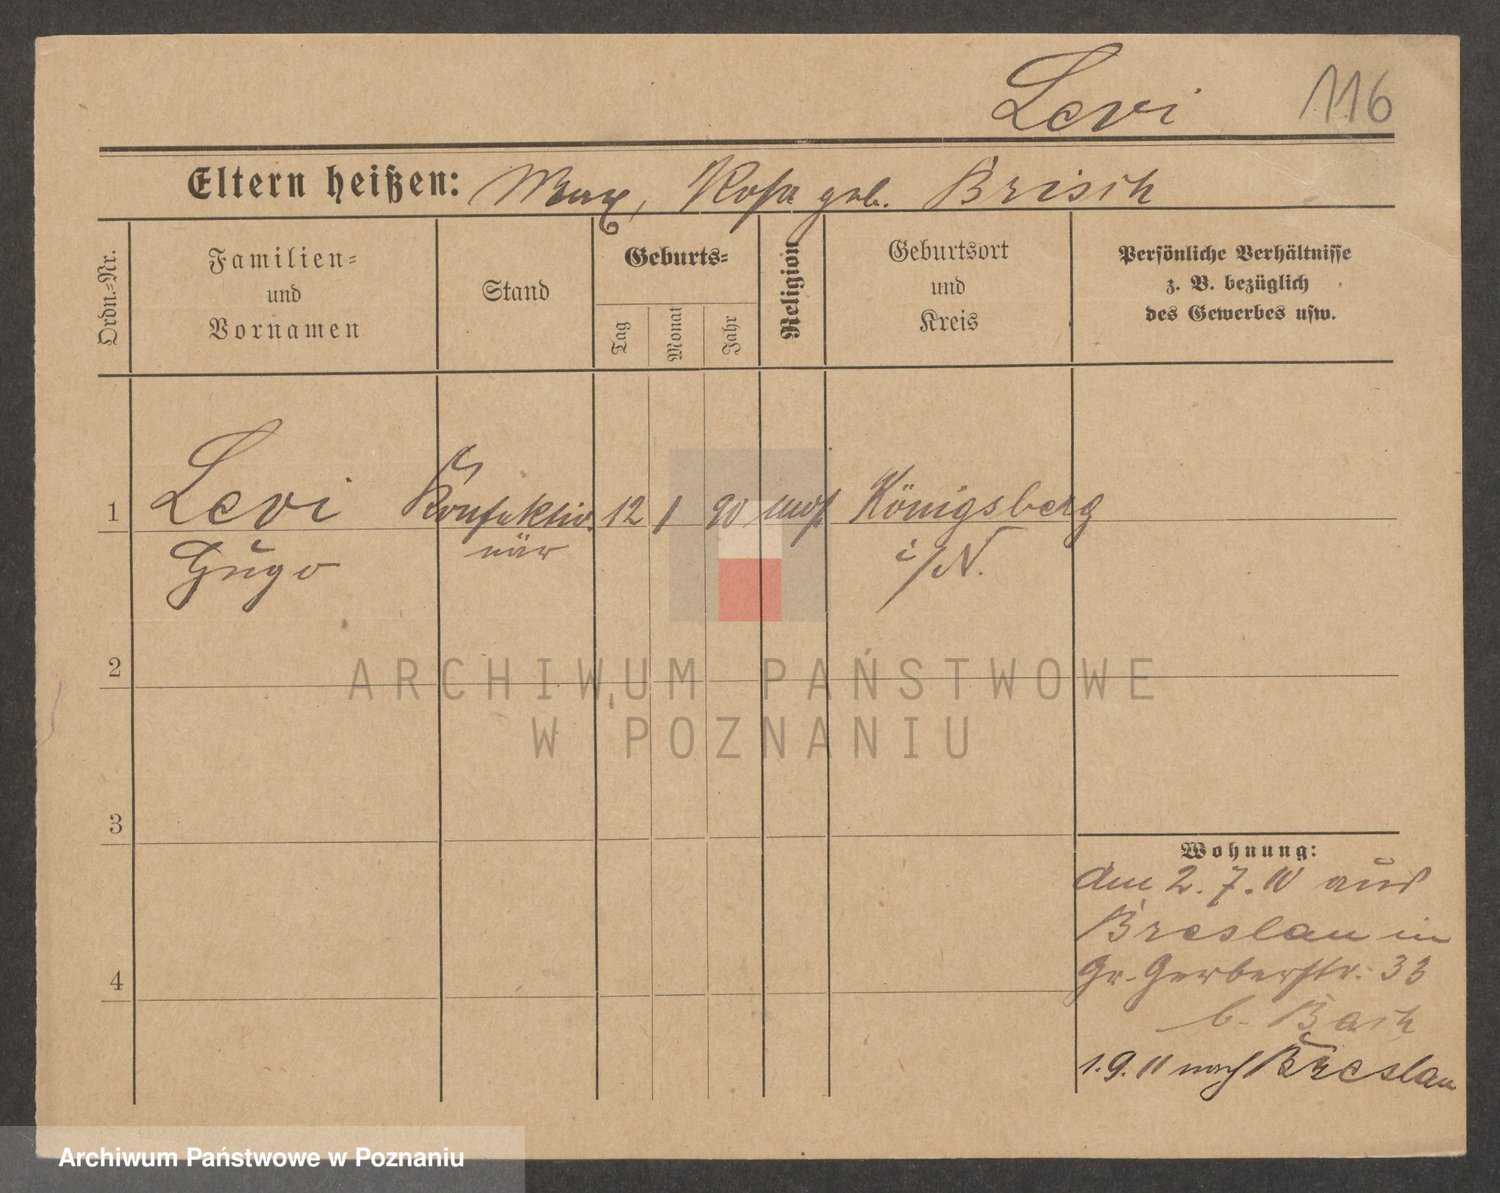 Levi 116
Eltern heißen: Max, Rosa geb. Brisch
Ordn.-Nr.
Familien-
und
Vornamen
Stand
Geburts-
Tag
Monat
Jahr
Religion
Geburtsort
und
Kreis
Persönliche Verhältnisse
z. B. bezüglich
des Gewerbes usw.
1 Levi Konfektio 12 1 90 mos Königsberg
Hugo när i/N.
2
3
4
Wohnung:
den 2. 7. aus
Breslau in
Gr. Gerberstr. 33
b. Basch
1. 9. 11 nach Breslau
ARCHIWUM PAŃSTWOWE
W POZNANIU
Archiwum Państwowe w Poznaniu